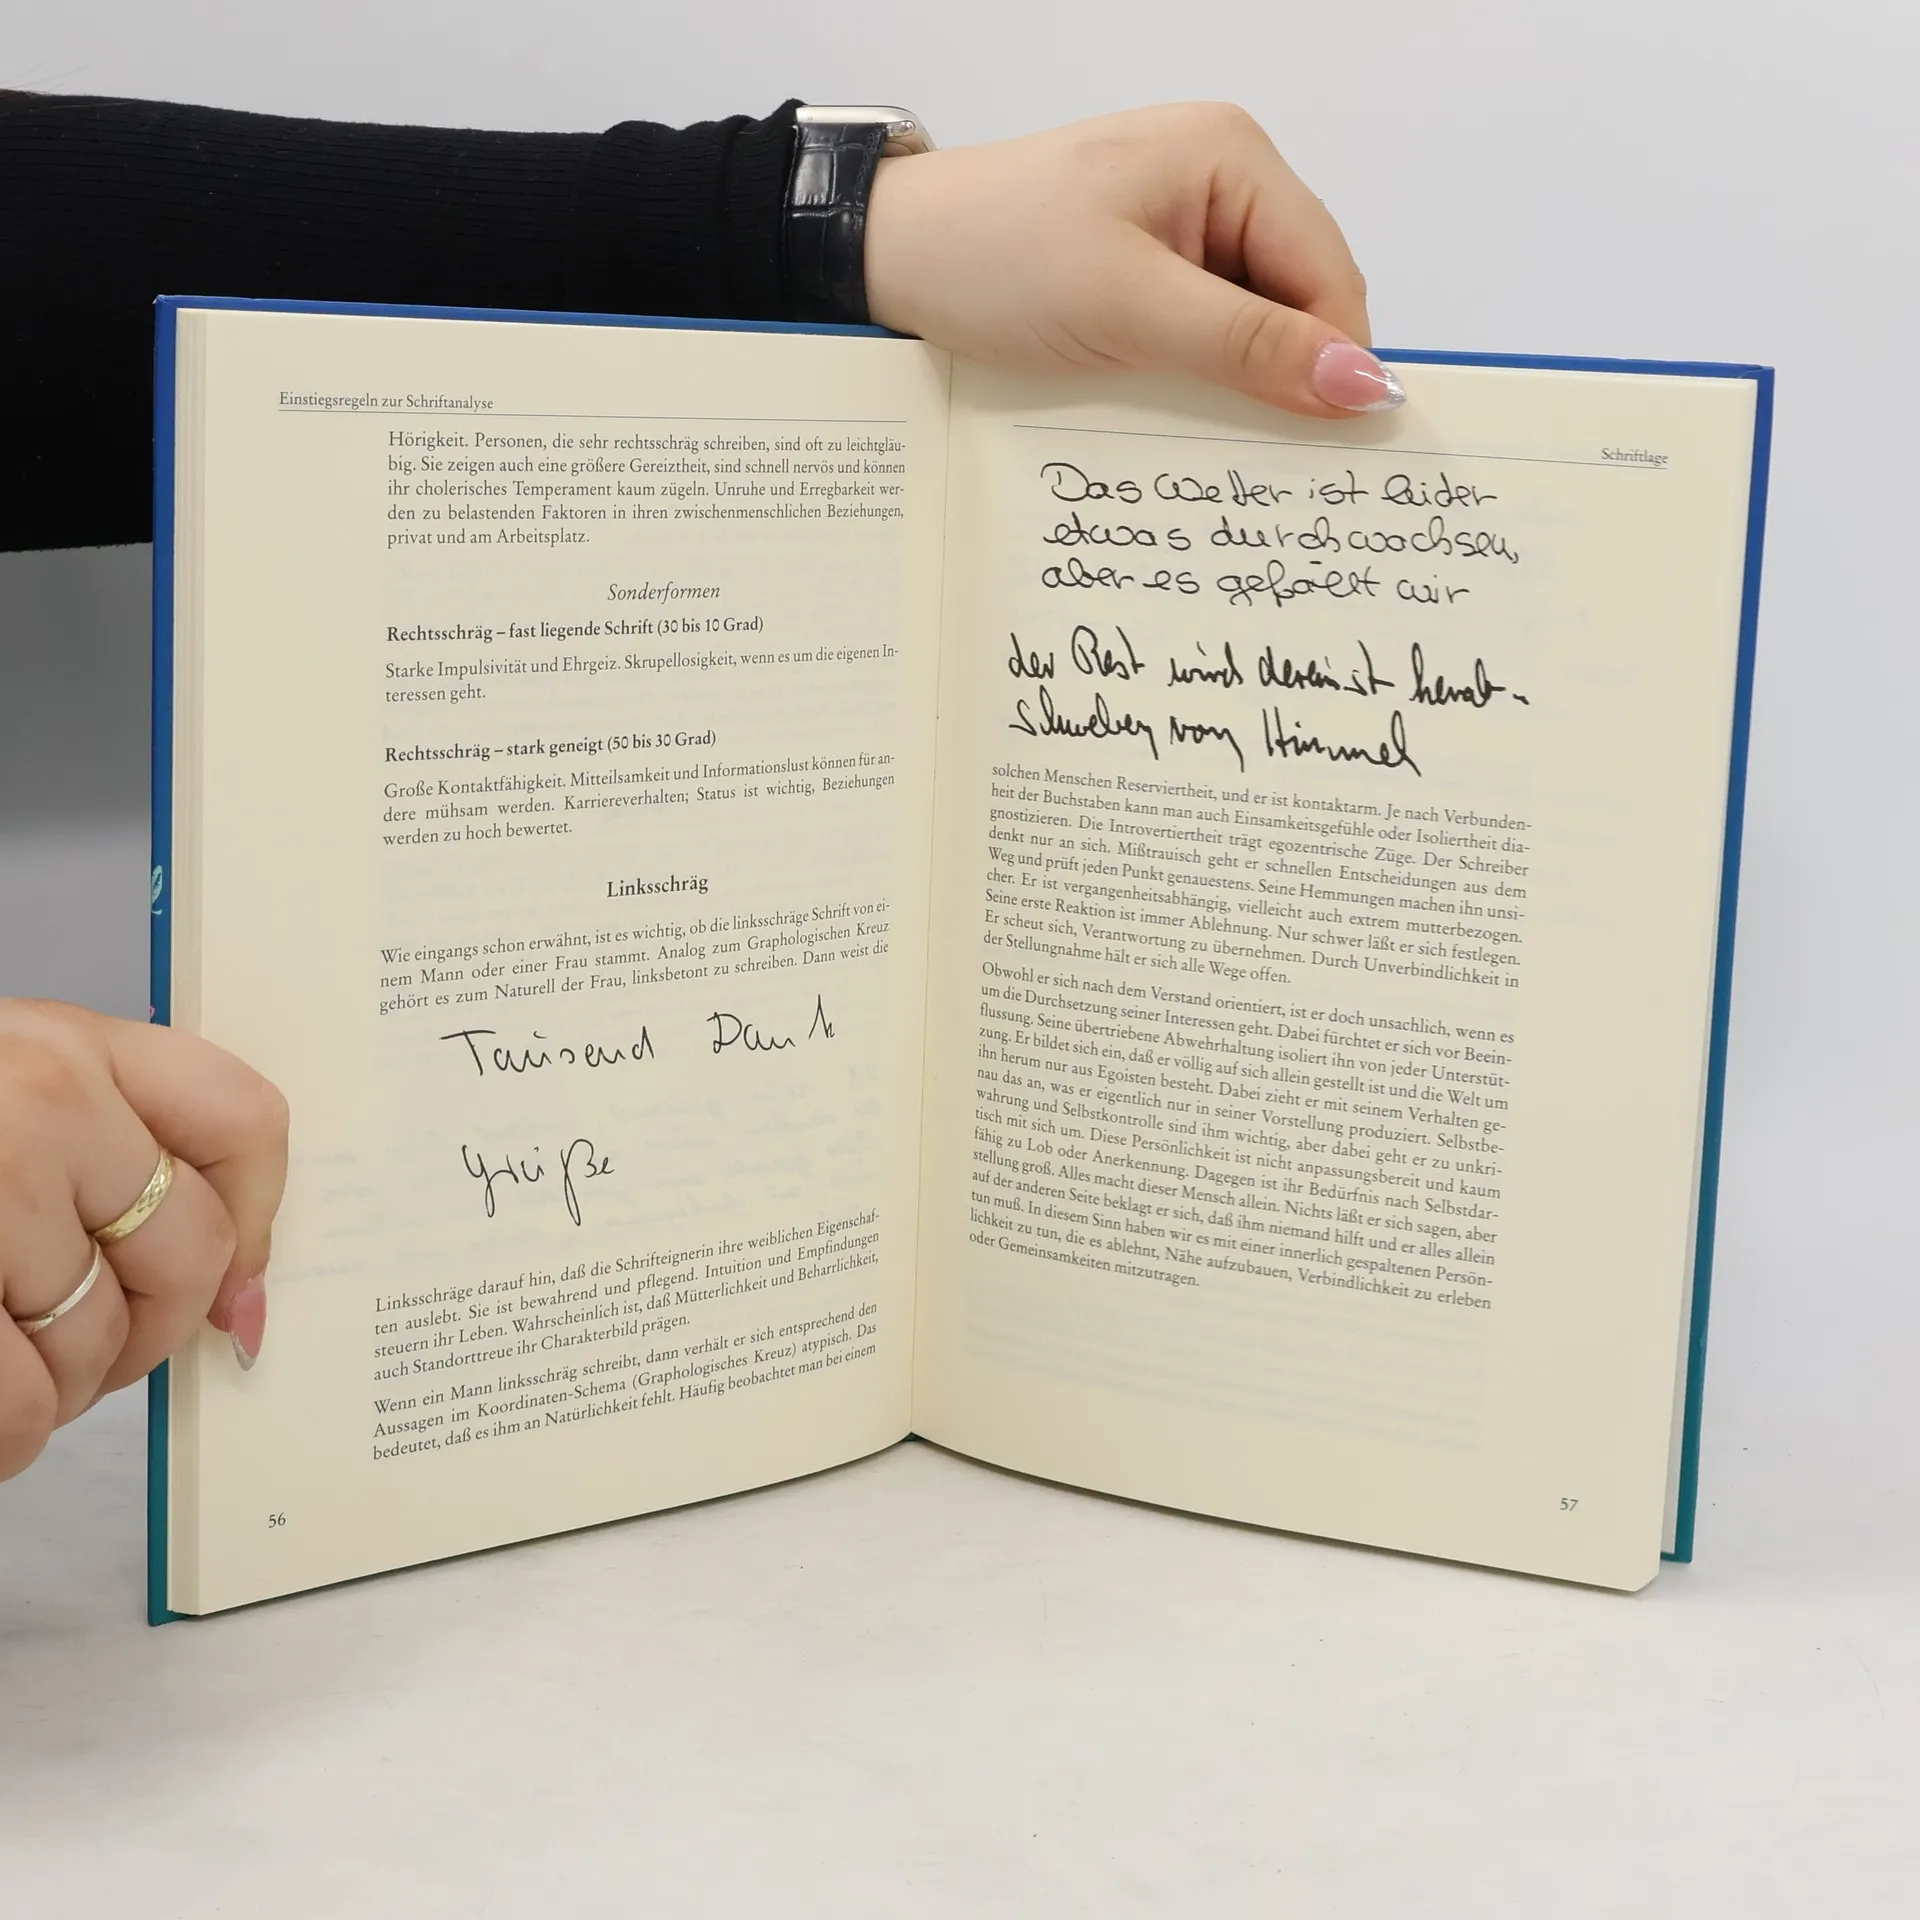 Einstiegsregeln zur Schriftanalyse
Hörigkeit. Personen, die sehr rechtsschräg schreiben, sind oft zu leichtgläu-
big. Sie zeigen auch eine größere Gereiztheit, sind schnell nervös und können
ihr cholerisches Temperament kaum zügeln. Unruhe und Erregbarkeit wer-
den zu belastenden Faktoren in ihren zwischenmenschlichen Beziehungen,
privat und am Arbeitsplatz.
Sonderformen
Rechtsschräg – fast liegende Schrift (30 bis 10 Grad)
Starke Impulsivität und Ehrgeiz. Skrupellosigkeit, wenn es um die eigenen In-
teressen geht.
Rechtsschräg – stark geneigt (50 bis 30 Grad)
Große Kontaktfähigkeit. Mitteilsamkeit und Informationslust können für an-
dere mühsam werden. Karriereverhalten; Status ist wichtig, Beziehungen
werden zu hoch bewertet.
Linksschräg
Wie eingangs schon erwähnt, ist es wichtig, ob die linksschräge Schrift von ei-
nem Mann oder einer Frau stammt. Analog zum Graphologischen Kreuz
gehört es zum Naturell der Frau, linksbetont zu schreiben. Dann weist die
Tausend Dank
Grüße
Linksschräge darauf hin, daß die Schrifteignerin ihre weiblichen Eigenschaf-
ten auslebt. Sie ist bewahrend und pflegend. Intuition und Empfindungen
steuern ihr Leben. Wahrscheinlich ist, daß Mütterlichkeit und Beharrlichkeit,
auch Standorttreue ihr Charakterbild prägen.
Wenn ein Mann linksschräg schreibt, dann verhält er sich entsprechend den
Aussagen im Koordinaten-Schema (Graphologisches Kreuz) atypisch. Das
bedeutet, daß es ihm an Natürlichkeit fehlt. Häufig beobachtet man bei einem
56
Schriftlage
Das Wetter ist leider
etwas durchwachsen,
aber es gefällt mir
der Rest wird dereinst herab-
schweben vom Himmel
solchen Menschen Reserviertheit, und er ist kontaktarm. Je nach Verbunden-
heit der Buchstaben kann man auch Einsamkeitsgefühle oder Isoliertheit dia-
gnostizieren. Die Introvertiertheit trägt egozentrische Züge. Der Schreiber
denkt nur an sich. Mißtrauisch geht er schnellen Entscheidungen aus dem
Weg und prüft jeden Punkt genauestens. Seine Hemmungen machen ihn unsi-
cher. Er ist vergangenheitsabhängig, vielleicht auch extrem mutterbezogen.
Seine erste Reaktion ist immer Ablehnung. Nur schwer läßt er sich festlegen.
Er scheut sich, Verantwortung zu übernehmen. Durch Unverbindlichkeit in
der Stellungnahme hält er sich alle Wege offen.
Obwohl er sich nach dem Verstand orientiert, ist er doch unsachlich, wenn es
um die Durchsetzung seiner Interessen geht. Dabei fürchtet er sich vor Beein-
flussung. Seine übertriebene Abwehrhaltung isoliert ihn von jeder Unterstüt-
zung. Er bildet sich ein, daß er völlig auf sich allein gestellt ist und die Welt um
ihn herum nur aus Egoisten besteht. Dabei zieht er mit seinem Verhalten ge-
nau das an, was er eigentlich nur in seiner Vorstellung produziert. Selbstbe-
wahrung und Selbstkontrolle sind ihm wichtig, aber dabei geht er zu unkri-
tisch mit sich um. Diese Persönlichkeit ist nicht anpassungsbereit und kaum
fähig zu Lob oder Anerkennung. Dagegen ist ihr Bedürfnis nach Selbstdar-
stellung groß. Alles macht dieser Mensch allein. Nichts läßt er sich sagen, aber
auf der anderen Seite beklagt er sich, daß ihm niemand hilft und er alles allein
tun muß. In diesem Sinn haben wir es mit einer innerlich gespaltenen Persön-
lichkeit zu tun, die es ablehnt, Nähe aufzubauen, Verbindlichkeit zu erleben
oder Gemeinsamkeiten mitzutragen.
57